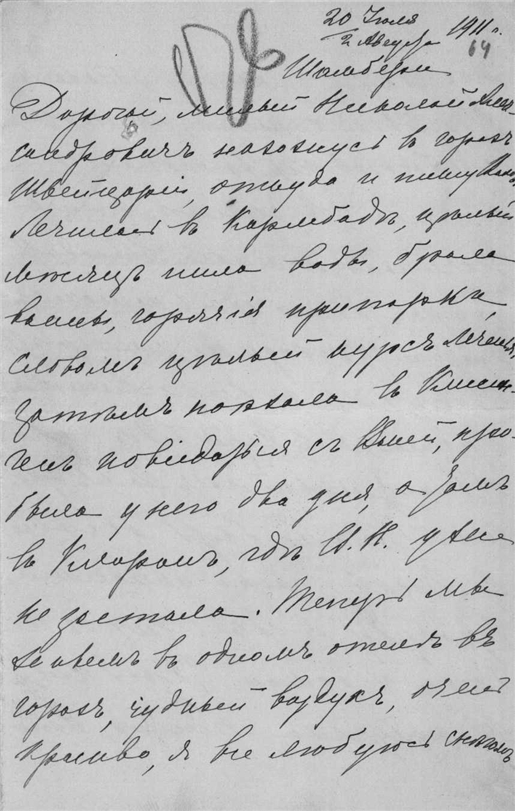 20 Июля
2 Августа 1911 г.
64
Шамбери
Дорогой, милый Николай Алек-
сандровичъ нахожусь въ горахъ
Швейцаріи, откуда и пишу Вамъ.
Лечилась въ Карлсбадѣ, цѣлый
мѣсяцъ пила воды, брала
ванны, горячія припарки,
словомъ цѣлый курсъ леченья,
затѣмъ поѣхала въ
повидаться съ Ваней, про-
была у него два дня, а тамъ
въ Кларанъ, гдѣ И. К. уже
не застала. Теперь мы
живемъ въ одномъ отелѣ въ
горахъ, чудный воздухъ, очень
красиво, я все любуюсь